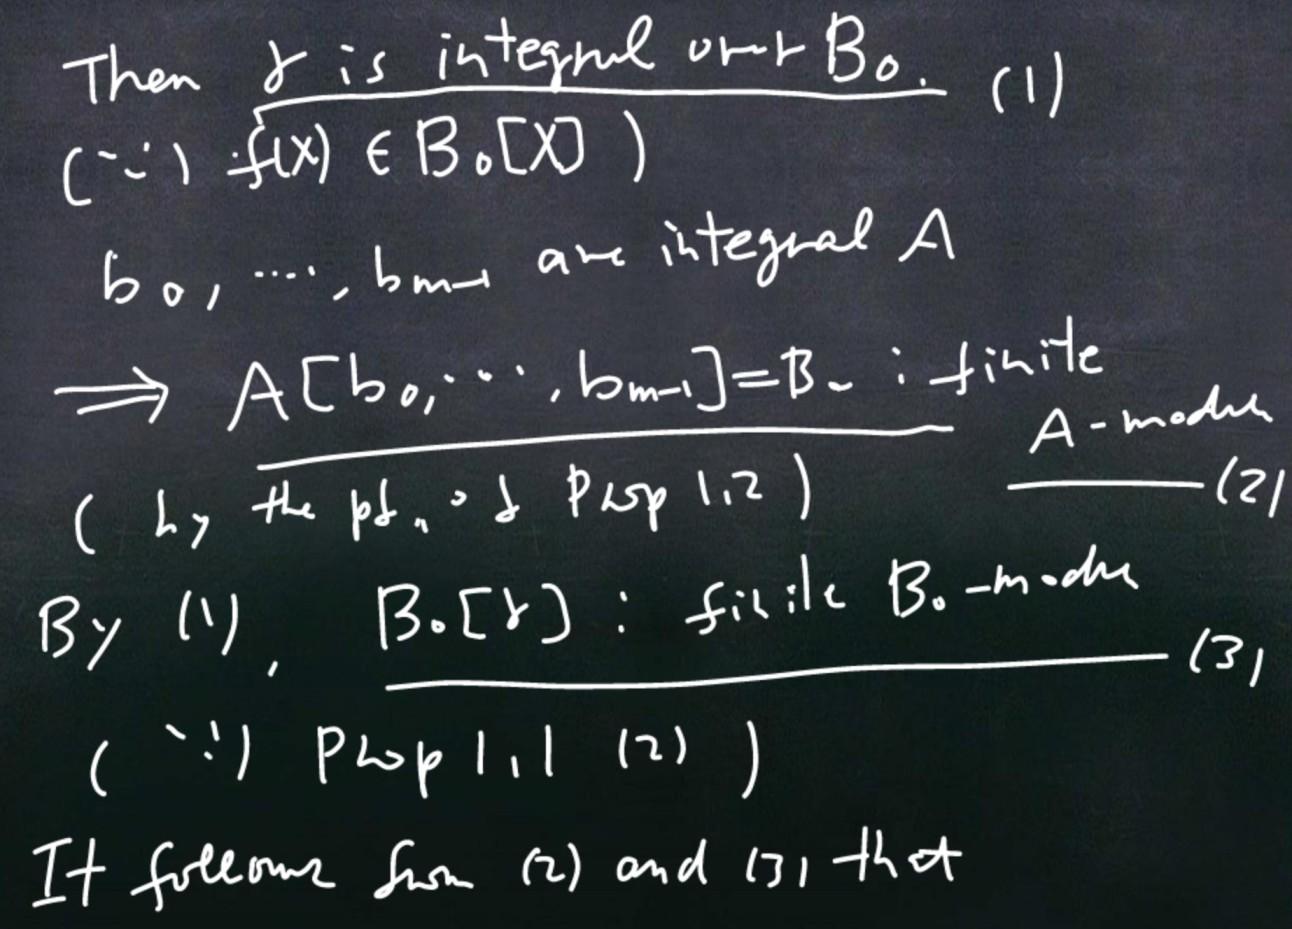 Then γ is integral over B₀. (1)
(∵) f(X) ∈ B₀[X] )
b₀, ...., bₘ₋₁ are integral A
⟹ A[b₀, ..., bₘ₋₁] = B₀ : finite
A-module (2)
( by the pf. of Prop 1.2 )
By (1), B₀[γ] : finite B₀-module
(3)
( ∵) Prop 1.1 (2) )
It follows from (2) and (3) that